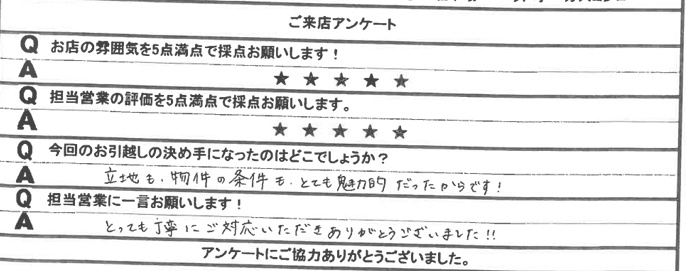 ご来店アンケート
Q お店の雰囲気を5点満点で採点お願いします！
A ★★★★★
Q 担当営業の評価を5点満点で採点お願いします。
A ★★★★★
Q 今回のお引越しの決め手になったのはどこでしょうか？
A 立地も、物件の条件も、とても魅力的だったからです！
Q 担当営業に一言お願いします！
A とっても丁寧にご対応いただきありがとうございました!!
アンケートにご協力ありがとうございました。